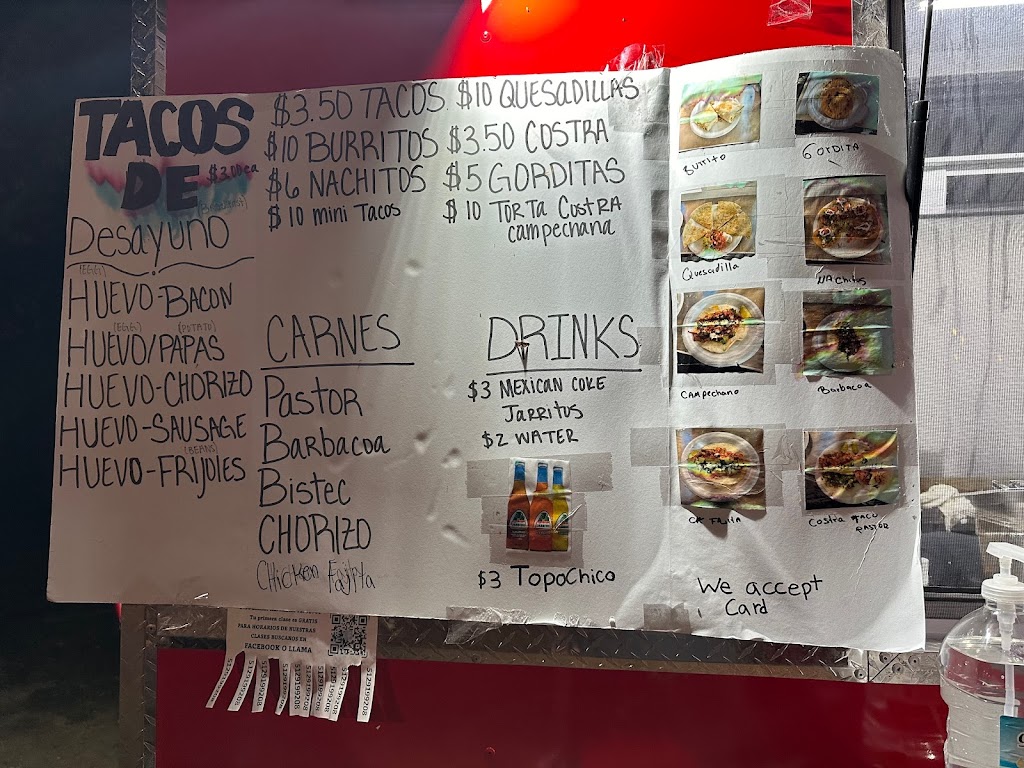 TACOS
DE $3.00ea
Desayuno
(EGG)
HUEVO-BACON
(EGG) (POTATO)
HUEVO/PAPAS
HUEVO-CHORIZO
HUEVO-SAUSAGE
(BEANS)
HUEVO-FRIJOLES
$3.50 TACOS $10 QUESADILLAS
$10 BURRITOS $3.50 COSTRA
$6 NACHITOS $5 GORDITAS
$10 mini Tacos $10 TORTA COSTRA
campechana
CARNES
Pastor
Barbacoa
Bistec
CHORIZO
Chicken Fajita
DRINKS
$3 MEXICAN COKE
Jarritos
$2 WATER
$3 TopoChico
Burrito GORDITA
Quesadilla NAchitos
CAMPechano Barbacoa
Costra TACO
PASTOR
We accept
Card
Tu primera clase es GRATIS
PARA HORARIOS DE NUESTRAS
CLASES BUSCANOS EN
FACEBOOK O LLAMA
5129199208
5129199208
5129199208
5129199208
5129199208
5129199208
5129199208